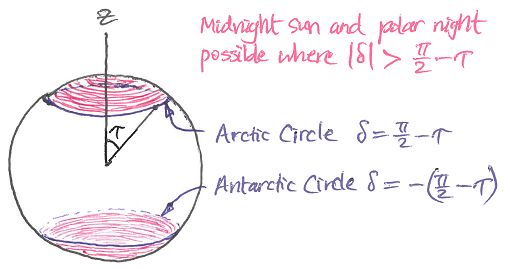 z
Midnight sun and polar night
possible where |δ| > π/2 − τ
τ
Arctic Circle δ = π/2 − τ
Antarctic Circle δ = −(π/2 − τ)